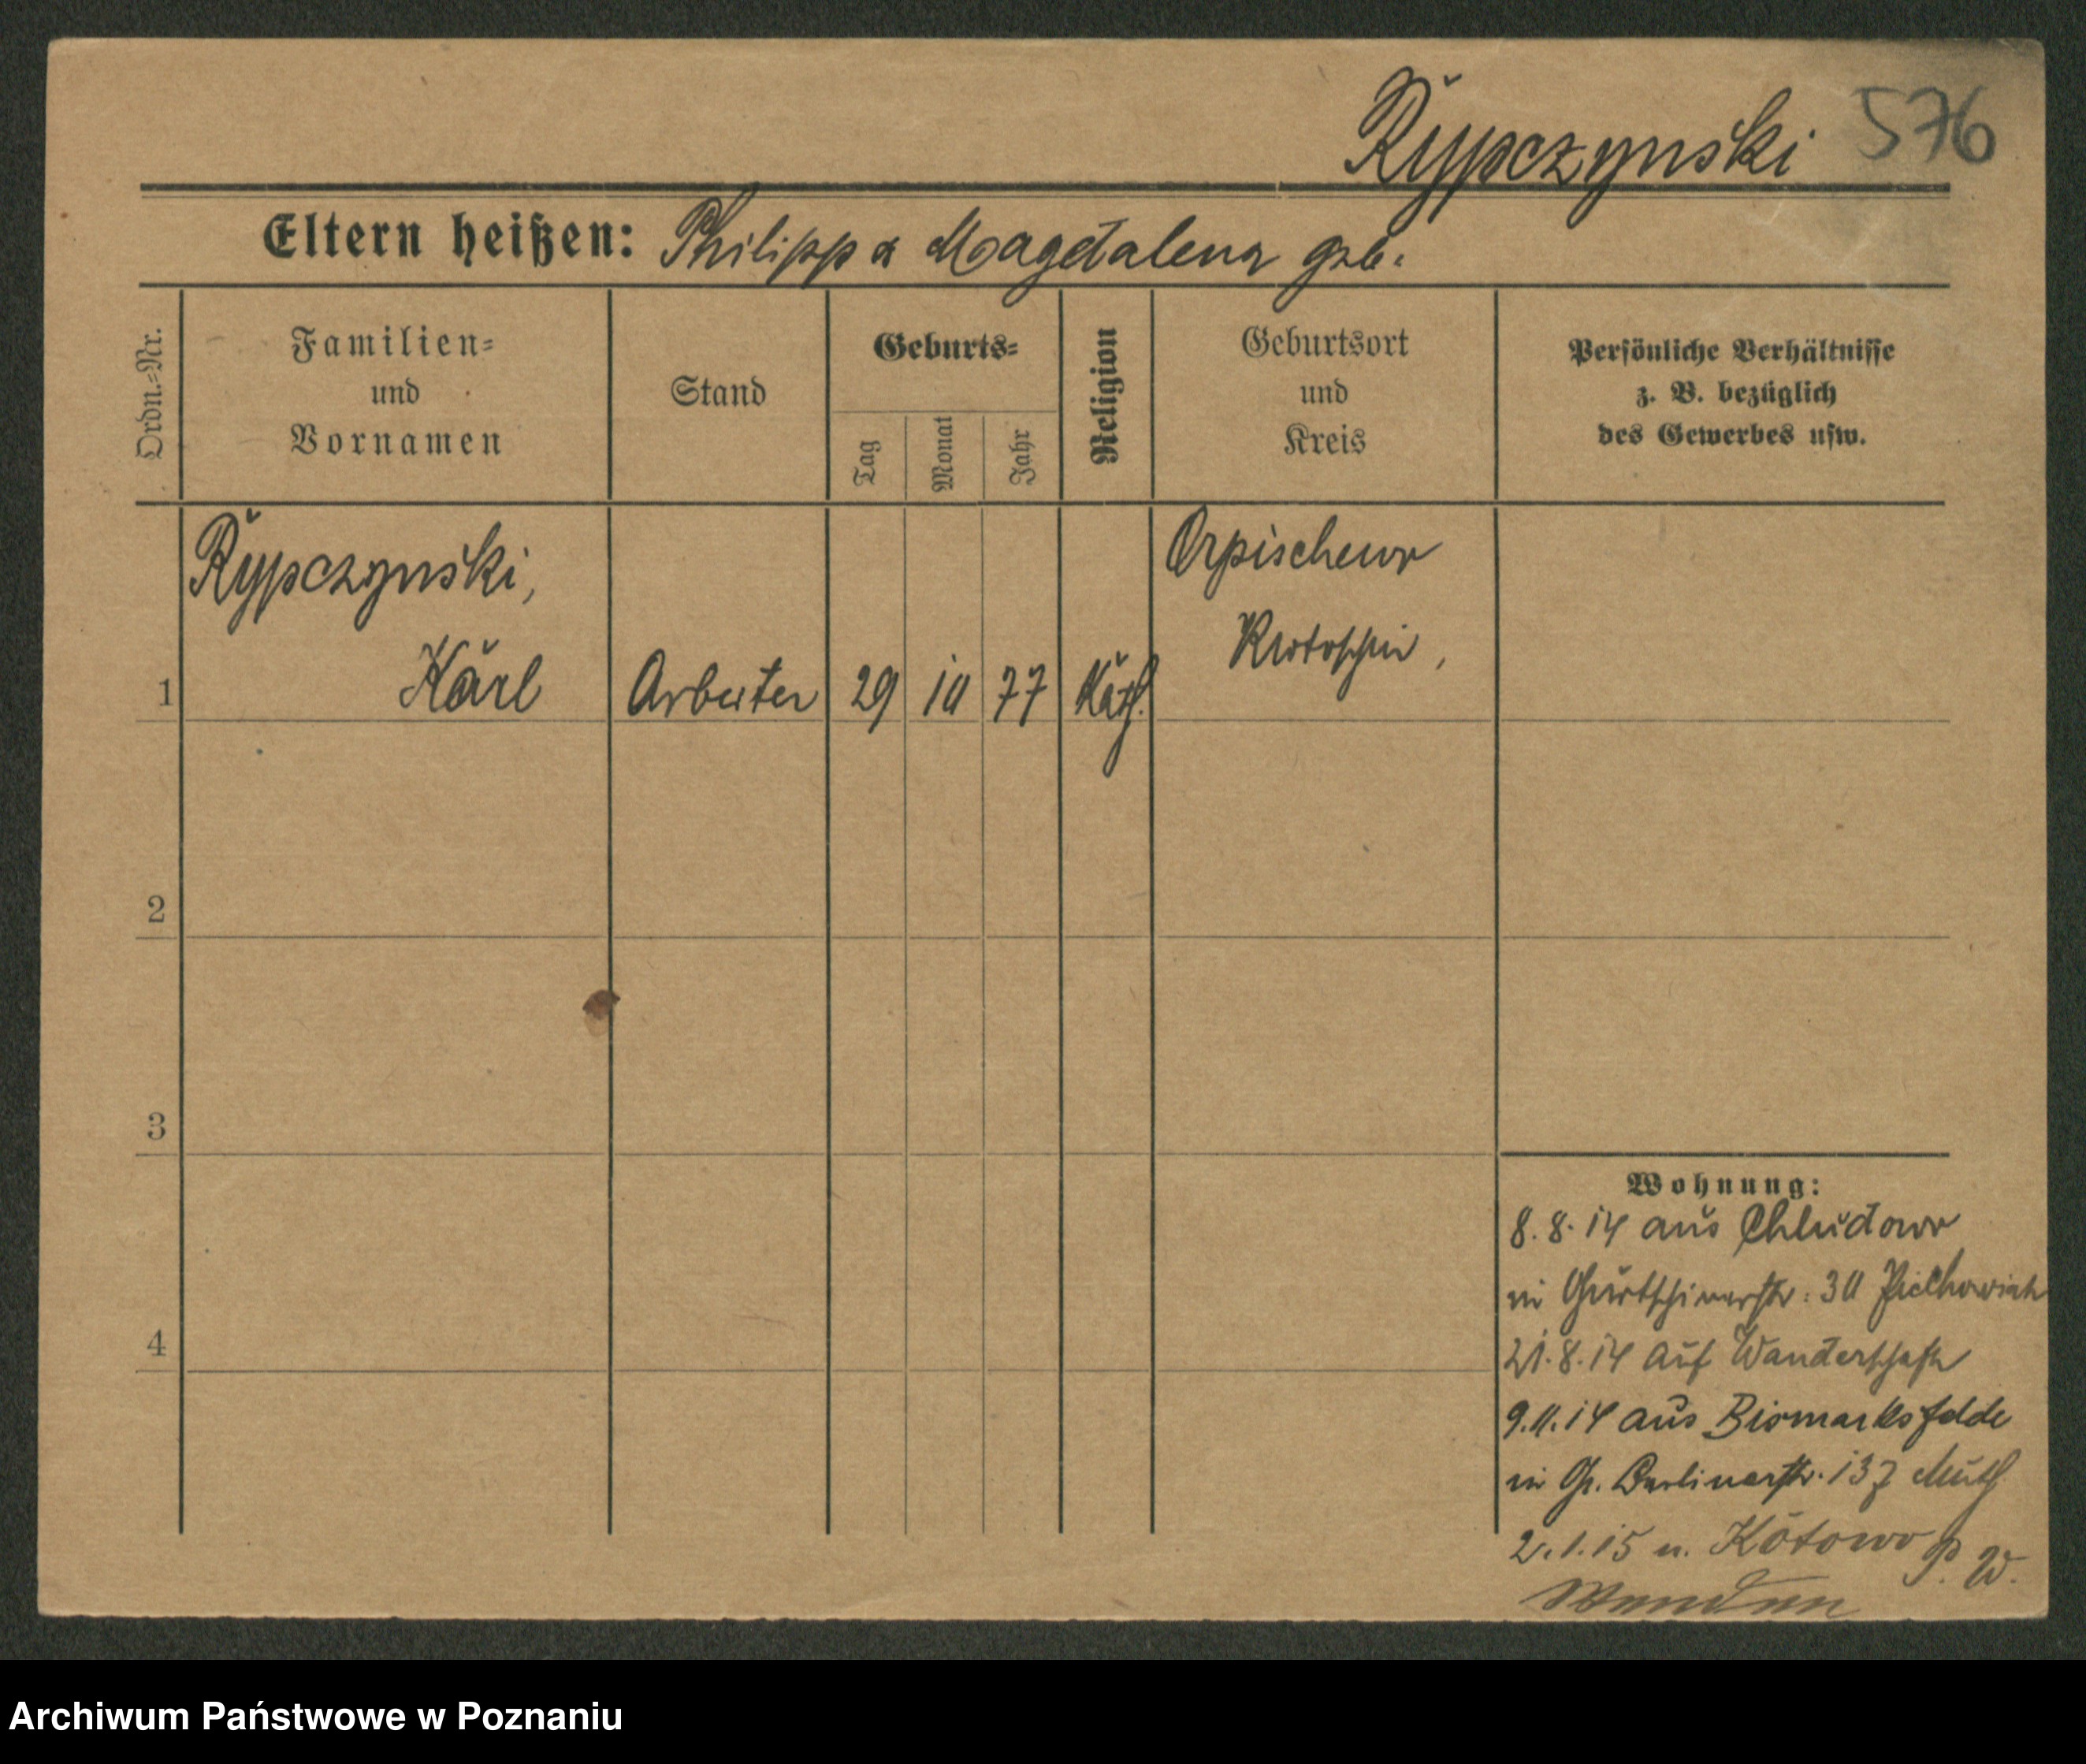 Rypczynski 576
Eltern heißen: Philipp & Magdalena geb.
Ordn.=Nr.
Familien=
und
Vornamen
Stand
Geburts=
Tag
Monat
Jahr
Religion
Geburtsort
und
Kreis
Persönliche Verhältnisse
z. B. bezüglich
des Gewerbes usw.
Rypczynski,
Karl
1
Arbeiter 29 10 77 Kath.
Orpischewo
Krotoschin,
2
3
4
Wohnung:
8.8.14 aus Chludowo
in Gurtschinerstr: 30
21.8.14 auf Wanderschaft
9.11.14 aus Bismarksfelde
in Gr. Berlinerstr. 137
2.1.15 n. Kotowo P. W.
Archiwum Państwowe w Poznaniu